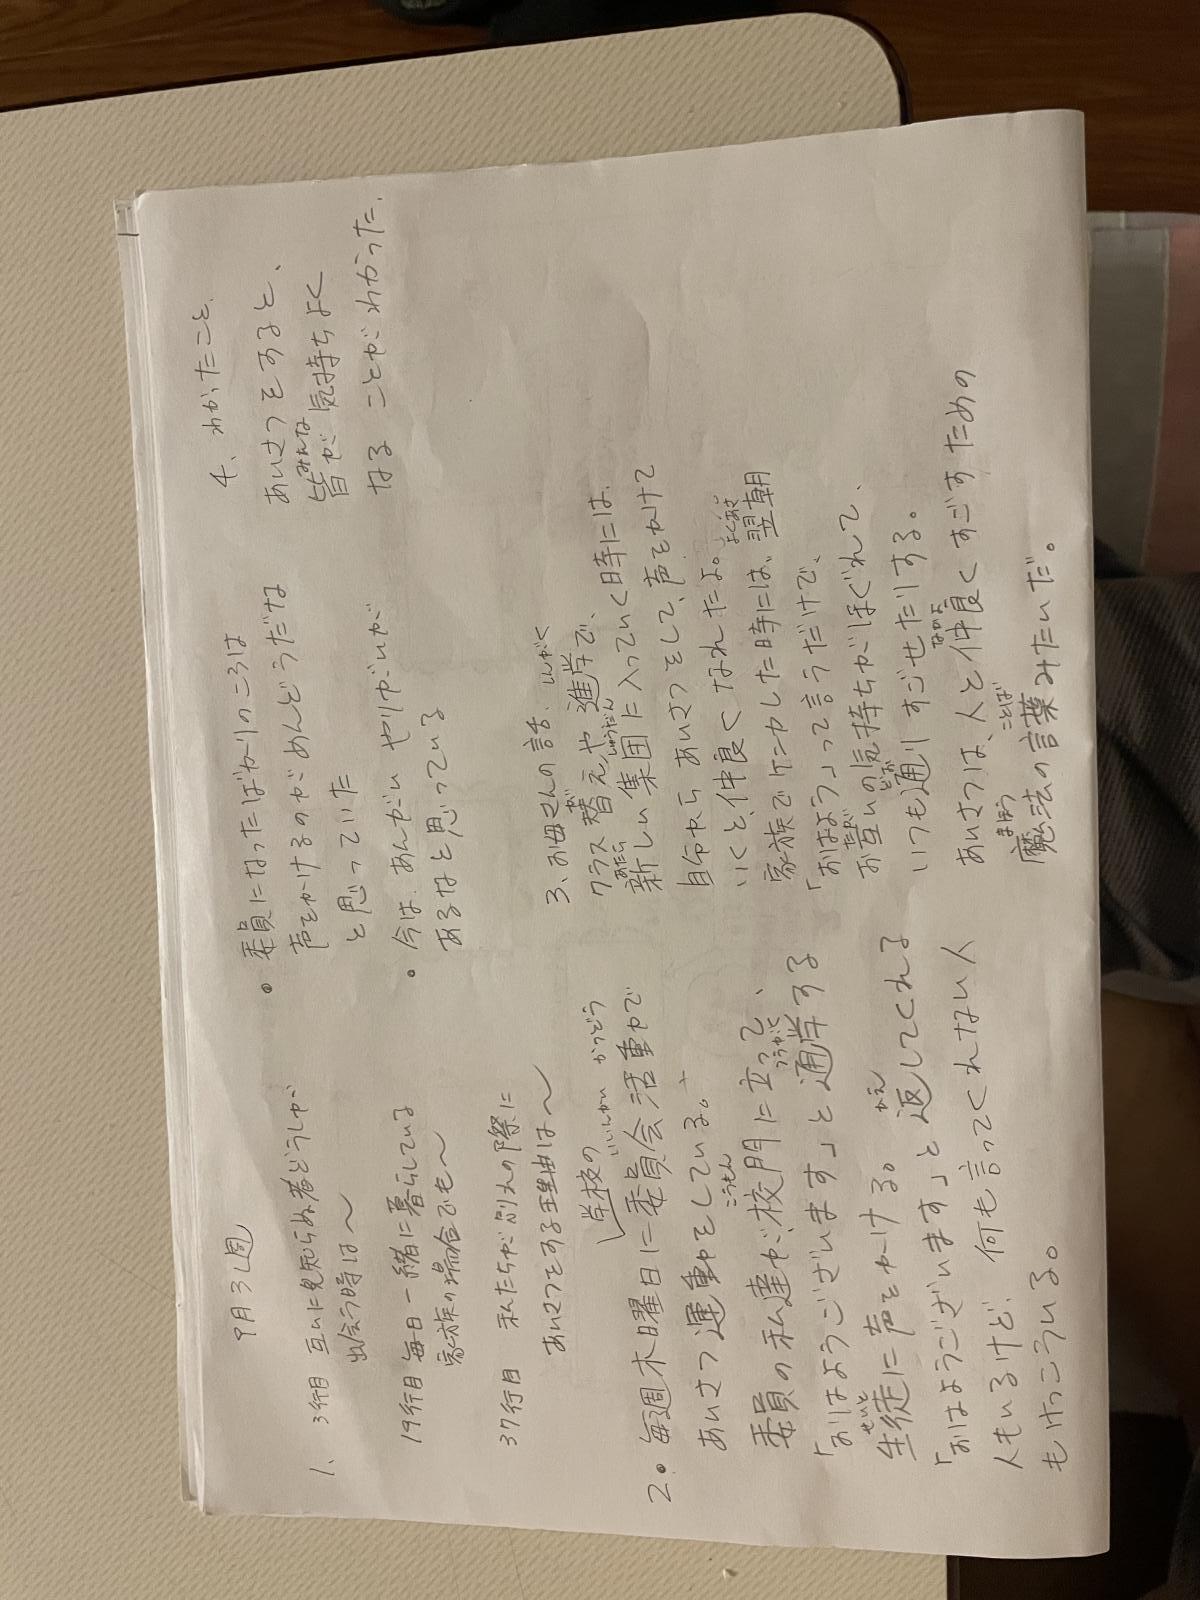 9月3週
1、3行目 互いに見知らぬ者どうしが
出会う時は〜
19行目 毎日一緒に暮らしている
家族の場合でも〜
37行目 私たちが別れの際に
あいさつをする理由は〜
学校の いいんかい かつどう
2。毎週木曜日に委員会活動で
あいさつ運動をしている。
こうもん
委員の私達が、校門に立って、
つうがく
「おはようございます」と通学する
せいと
生徒に声をかける。
かえ
「おはようございます」と返してくれる
人もいるけど、何も言ってくれない人
もけっこういる。
• 委員になったばかりのころは
声をかけるのがめんどうだな
と思っていた
• 今は、あんがい やりがいが
あるなと思っている
3、お母さんの話、
が しんがく
クラス替えや進学で、
あたら しゅうだん
新しい集団に入っていく時には、
自分からあいさつをして、声をかけて
いくと、仲良くなれたよ。
よくあさ
家族でケンカした時には、翌朝
「おはよう」って言うだけで、
たが
お互いの気持ちがほぐれて、
どお
いつも通りすごせたりする。
なかよ
あいさつは、人と仲良くすごすための
まほう ことば
魔法の言葉みたいだ。
4、わかったこと、
あいさつをすると、
みんな
皆が気持ちよく
なることがわかった。